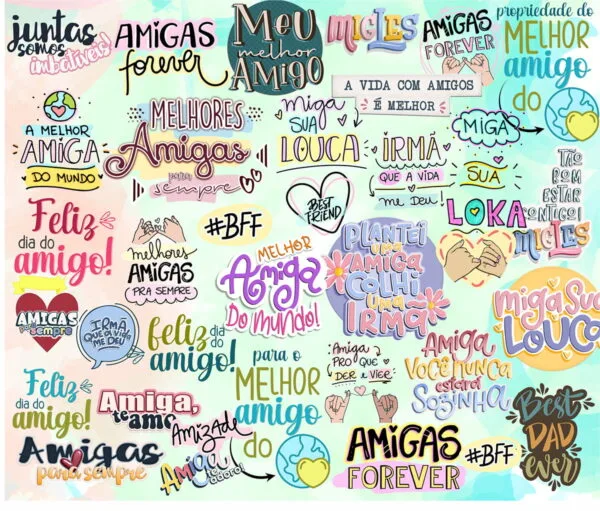 juntas
somos
imbatíveis!
AMIGAS
forever
MEU
melhor
AMIGO
MIGLES
AMIGAS
FOREVER
propriedade do
MELHOR
amigo
do
A VIDA COM AMIGOS
É MELHOR
A MELHOR
AMIGA
DO MUNDO
MELHORES
Amigas
para
sempre
miga
SUA
LOUCA
IRMÃ
QUE A VIDA
me Deu!
MIGA
SUA
LOKA
TÃO
BOM
ESTAR
CONTIGO!
MIGLES
Feliz
dia do
amigo!
melhores
AMIGAS
PRA SEMPRE
#BFF
BEST
FRIEND
MELHOR
Amiga
DO MUNDO!
PLANTEI
UMA
AMIGA
COLHI
UMA
IRMÃ
Miga Sua
LOUCA
AMIGAS
sempre
IRMÃ
QUE A VIDA
ME DEU
feliz dia do
amigo!
para o
MELHOR
amigo
do
Amiga
PRO QUE
DER e VIER
AMIGA
VOCÊ NUNCA
estará
Sozinha
Feliz
dia do
amigo!
Amiga,
te amo
AMIZADE
Amigo
te adoro!
Amigas
para sempre
AMIGAS
FOREVER
#BFF
Best
DAD
ever